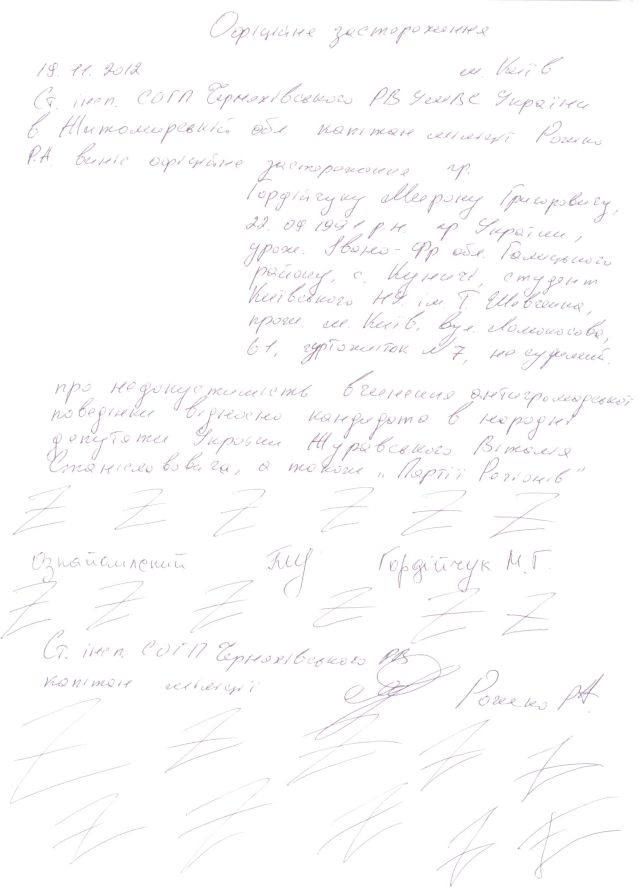 Офіційне застереження
19.11.2012 м. Київ
Ст. інсп. СОГП Черняхівського РВ УМВС України
в Житомирській обл капітан міліції Рожко
Р.А. виніс офіційне застереження гр.
Гордійчуку Мирону Григоровичу,
22.09.1991 р.н. гр України,
урож. Івано-Фр обл. Галицького
району, с. Куничі, студент
Київського НУ ім Т. Шевченка,
прож. м. Київ, вул. Ломоносова,
61, гуртожиток №7, не судимий.
про недопустимість вчинення антигромадської
поведінки відносно кандидата в народні
депутати України Журавського Віталія
Станіславовича, а також „Партії Регіонів"
Ознайомлений Гордійчук М.Г.
Ст. інсп. СОГП Черняхівського РВ
капітан міліції Рожко Р.А.